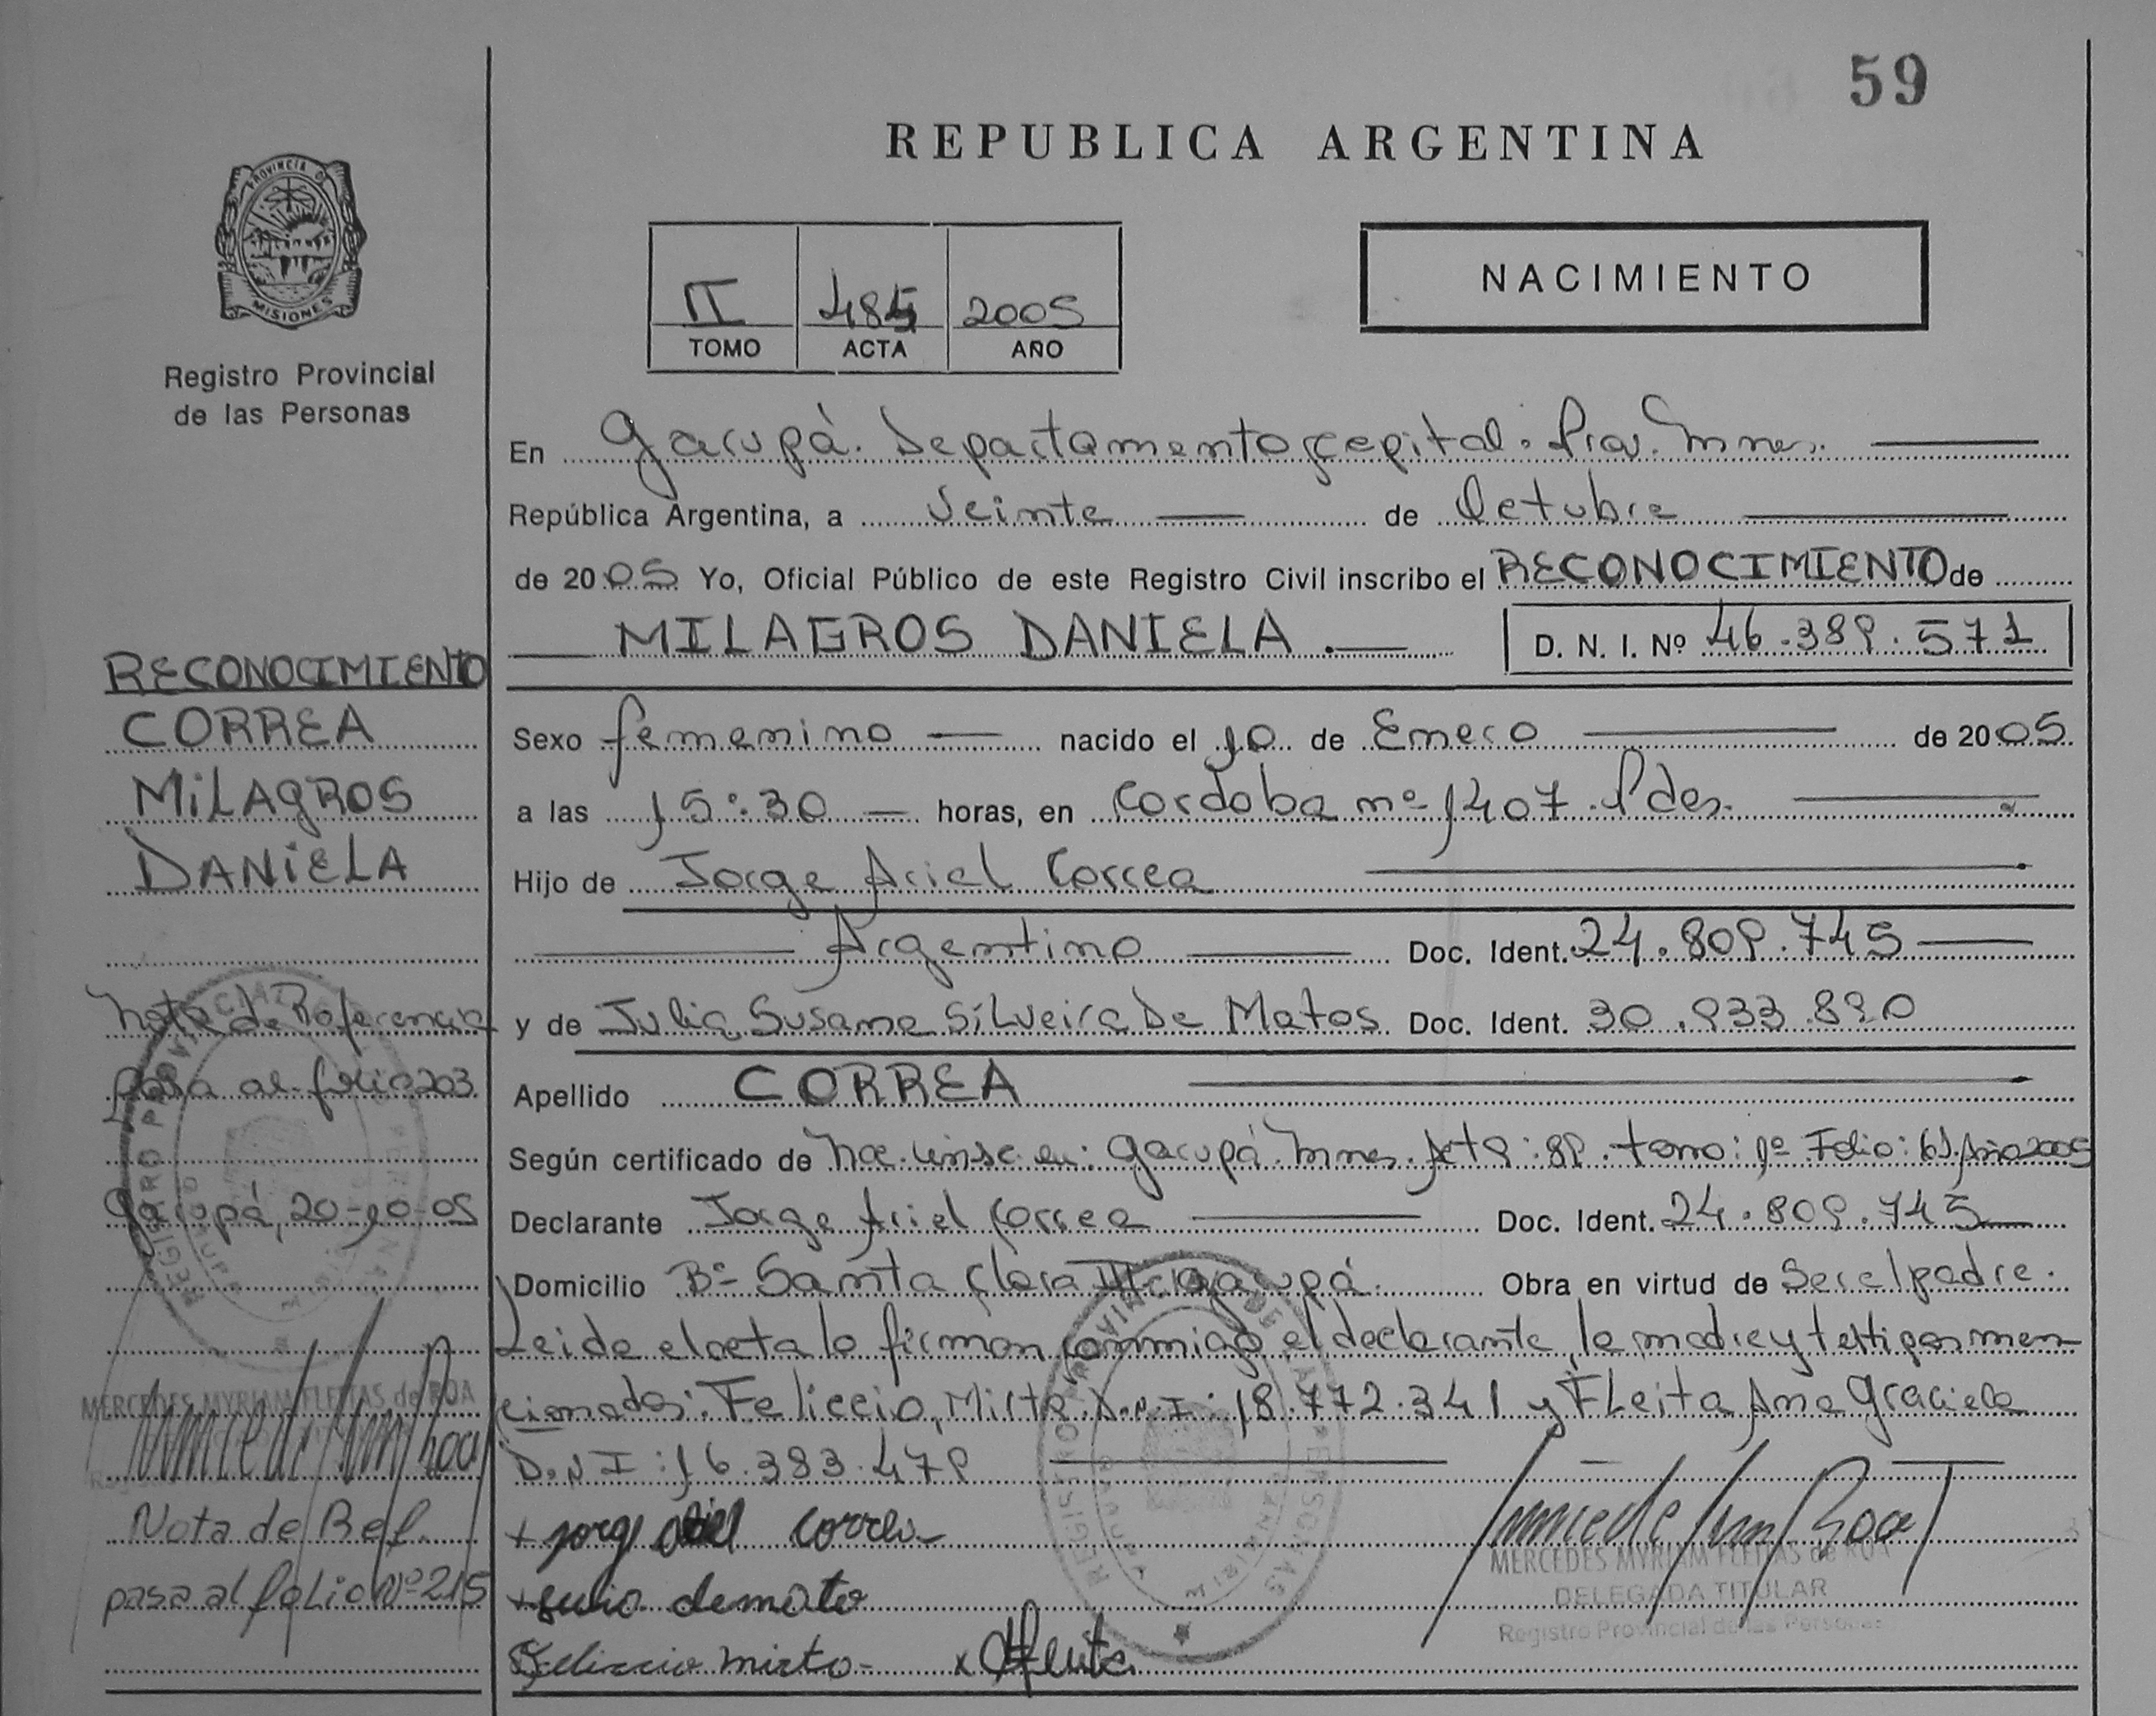 59
REPUBLICA ARGENTINA
PROVINCIA DE
MISIONES
Registro Provincial
de las Personas
II 485 2005
TOMO ACTA AÑO
NACIMIENTO
En Garupá. Departamento capital. Prov. Mnes.
República Argentina, a veinte de Octubre
de 2005 Yo, Oficial Público de este Registro Civil inscribo el RECONOCIMIENTO de
MILAGROS DANIELA. D. N. I. Nº 46.389.571
Sexo femenino nacido el 10 de Enero de 2005
a las 15:30 horas, en Cordoba nº 1407. Pdas.
Hijo de Jorge Ariel Correa
Argentino Doc. Ident. 24.809.745
y de Julia Susana Silveira De Matos Doc. Ident. 30.933.890
Apellido CORREA
Según certificado de Nac. insc. en: Garupá. Mnes. Acta: 89. tomo: 1º Folio: 61 Año 2005
Declarante Jorge Ariel Correa Doc. Ident. 24.809.745
Domicilio Bº Santa Clara III Garupá. Obra en virtud de Ser el padre.
Leida el acta la firman conmigo el declarante, la madre y testigos men
cionados: Feliccio, Mirta D.N.I: 18.772.341 y FLeita Ana Graciela
D.N I: 16.383.479
+ jorge ariel correa
+ julia demato
Feliccio mirta - x AFleita
MERCEDES MYRIAM FLEITAS de ROA
DELEGADA TITULAR
Registro Provincial de las Personas
RECONOCIMIENTO
CORREA
MiLAgROS
DANiELA
Nota de Referencia
pasa al folio 203
Garupá, 20-10-05
MERCEDES MYRIAM FLEITAS de ROA
Nota de Ref.
pasa al foLio Nº 215